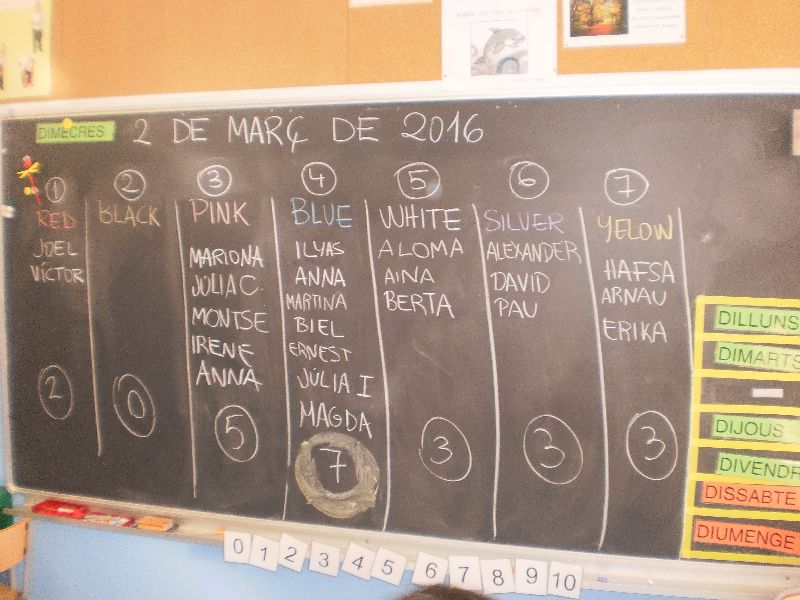 DIMECRES 2 DE MARÇ DE 2016
1 2 3 4 5 6 7
RED BLACK PINK BLUE WHITE SILVER YELOW
JOEL
VÍCTOR
2
0
MARIONA
JÚLIA C.
MONTSE
IRENE
ANNA
5
ILYAS
ANNA
MARTINA
BIEL
ERNEST
JÚLIA I
MAGDA
7
ALOMA
AINA
BERTA
3
ALEXANDER
DAVID
PAU
3
HAFSA
ARNAU
ERIKA
3
DILLUNS
DIMARTS
DIJOUS
DIVENDR
DISSABTE
DIUMENGE
0 1 2 3 4 5 6 7 8 9 10